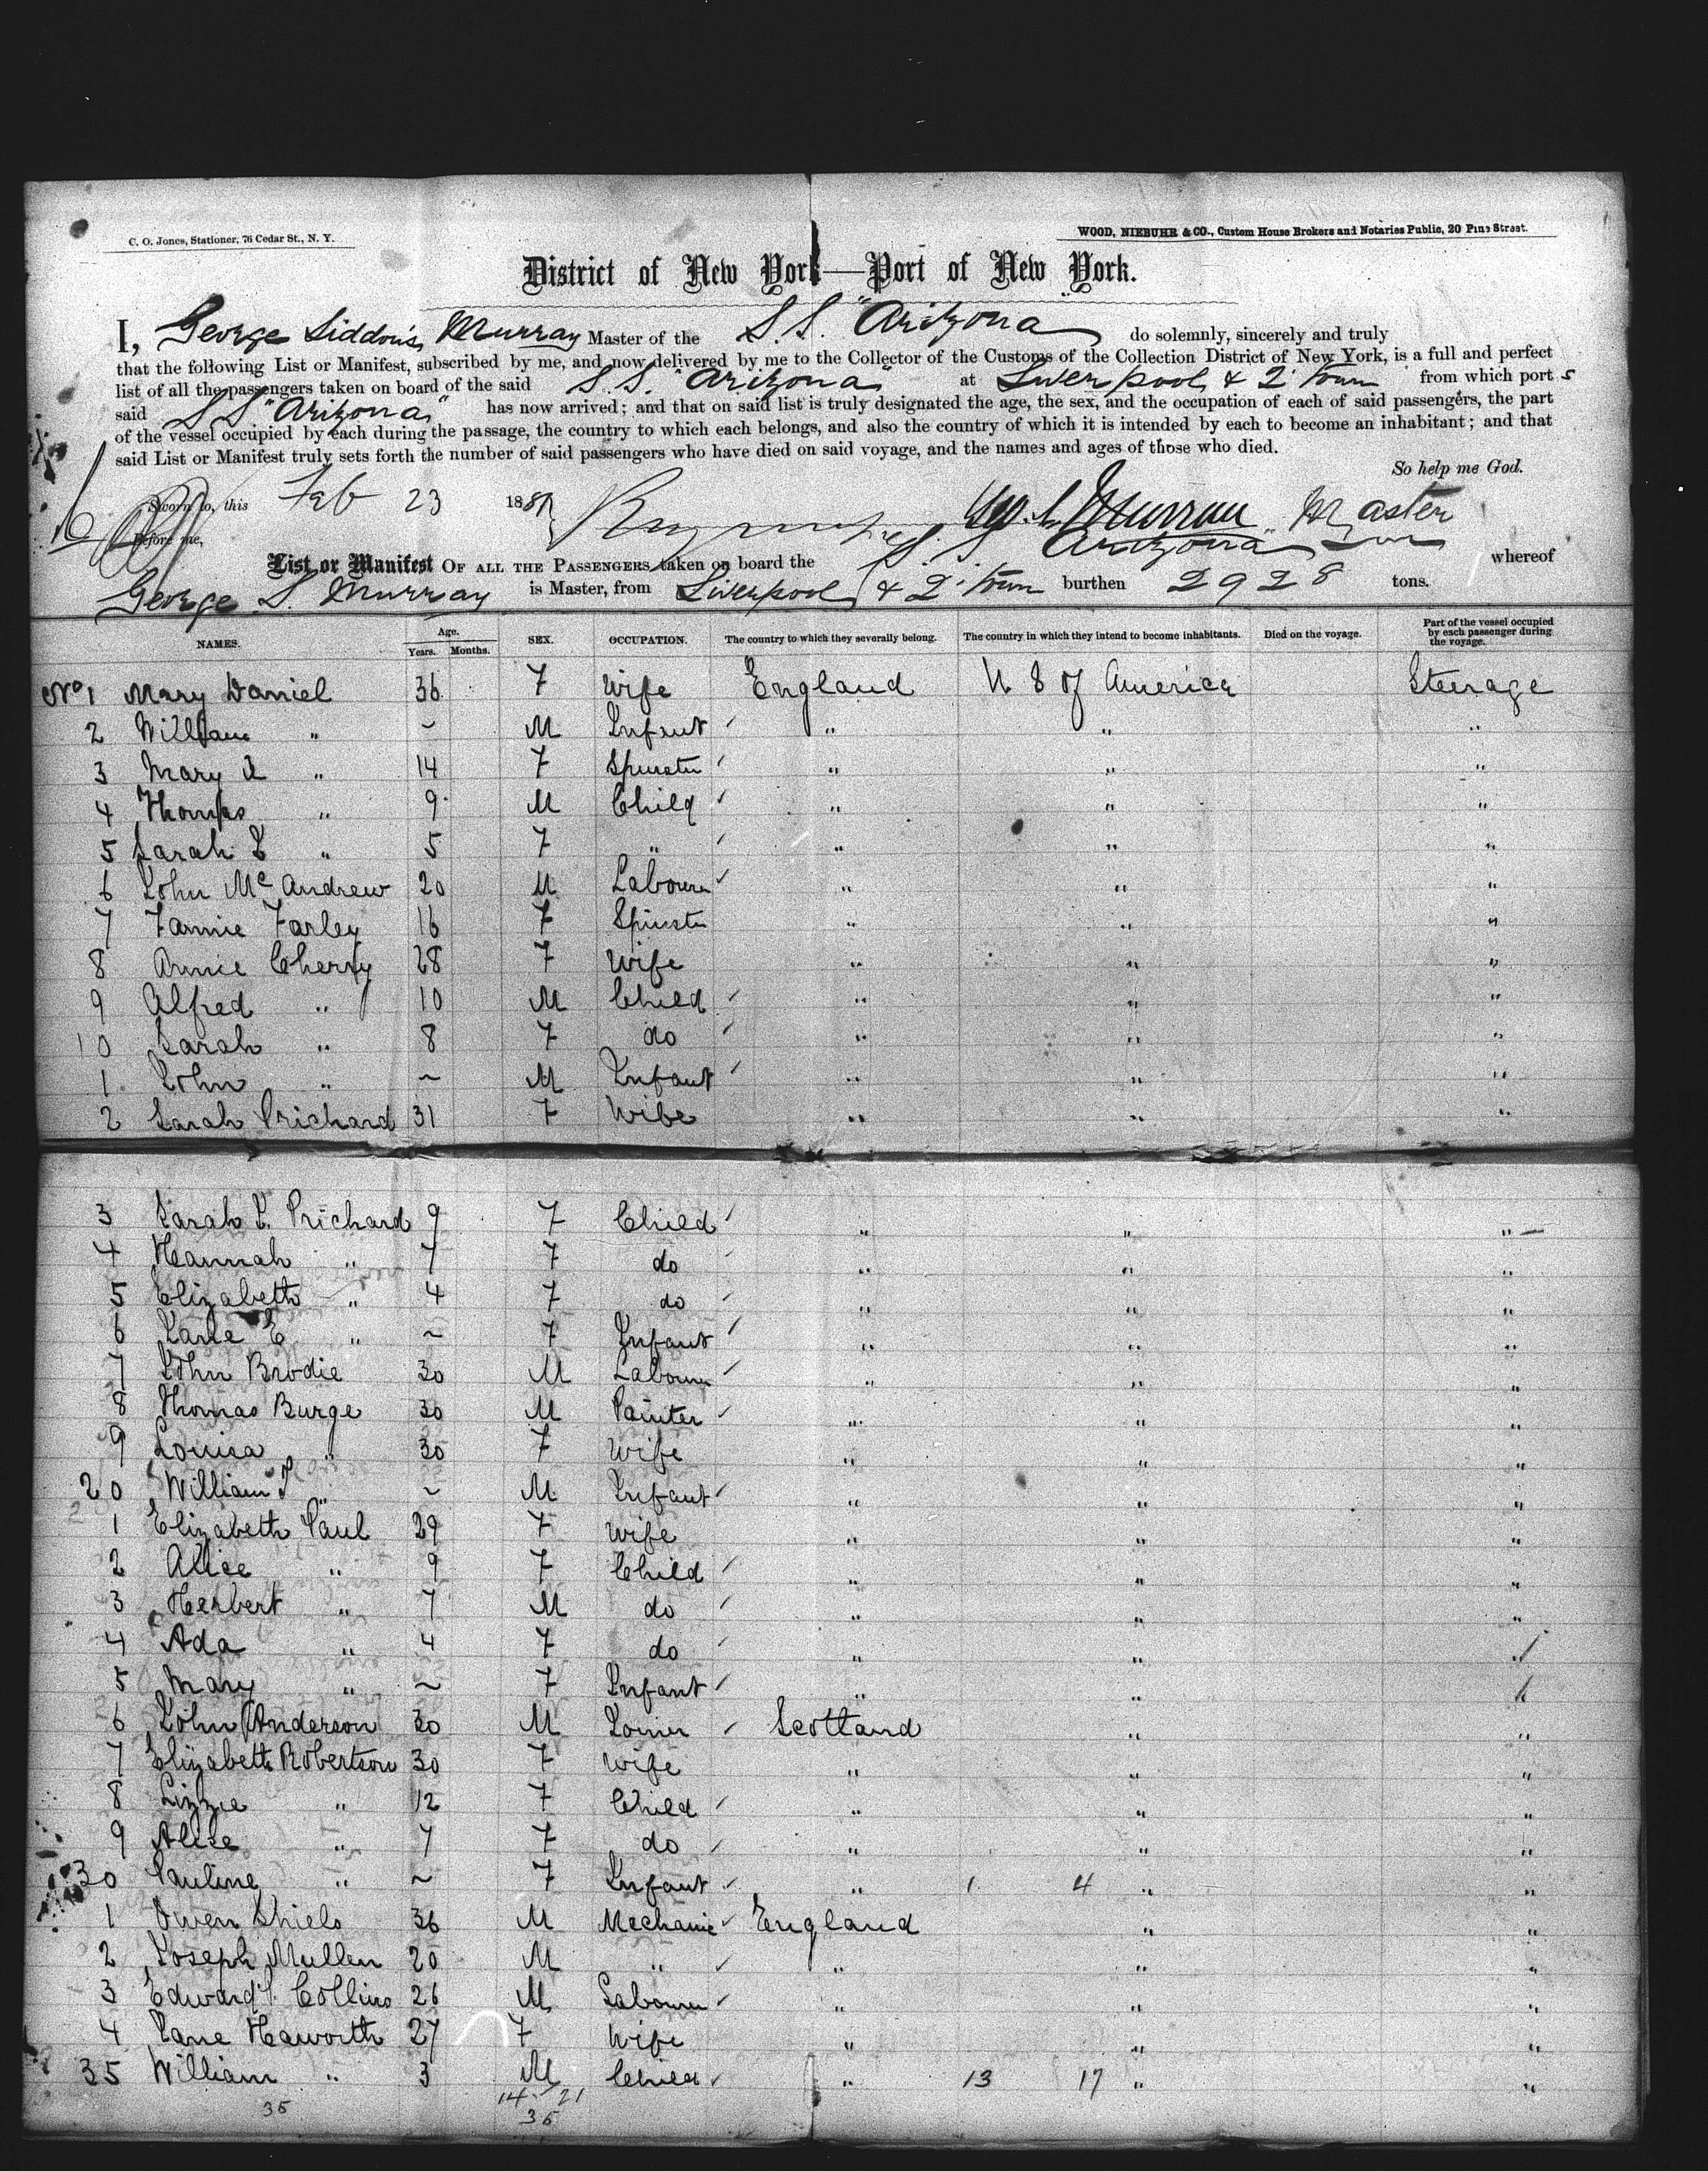 C. O. Jones, Stationer, 76 Cedar St., N. Y.
WOOD, NIEBUHR & CO., Custom House Brokers and Notaries Public, 20 Pine Street.
District of New York—Port of New York.
I, George Siddons Murray Master of the S.S. "Arizona" do solemnly, sincerely and truly
that the following List or Manifest, subscribed by me, and now delivered by me to the Collector of the Customs of the Collection District of New York, is a full and perfect
list of all the passengers taken on board of the said S.S. "Arizona" at Liverpool & Q. Town from which port s
said S S "Arizona" has now arrived; and that on said list is truly designated the age, the sex, and the occupation of each of said passengers, the part
of the vessel occupied by each during the passage, the country to which each belongs, and also the country of which it is intended by each to become an inhabitant; and that
said List or Manifest truly sets forth the number of said passengers who have died on said voyage, and the names and ages of those who died.
So help me God.
Sworn to, this Feb 23 188 Murray Master
Before me,
List or Manifest OF ALL THE PASSENGERS taken on board the S. S. Arizona whereof
George S. Murray is Master, from Liverpool & Q. Town burthen 2928 tons.
NAMES. Age. Years. Months. SEX. OCCUPATION. The country to which they severally belong. The country in which they intend to become inhabitants. Died on the voyage. Part of the vessel occupied by each passenger during the voyage.
No 1 Mary Daniel 36 F Wife England U S of America Steerage
2 William " ~ M Infant " " "
3 Mary A " 14 F Spinster " " "
4 Thomas " 9 M Child " " "
5 Sarah L " 5 F " " " "
6 John Mc Andrew 20 M Labourer " " "
7 Fannie Farley 16 F Spinster " " "
8 Annie Cherry 28 F Wife " " "
9 Alfred " 10 M Child " " "
10 Sarah " 8 F do " " "
1 John " ~ M Infant " " "
2 Sarah Prichard 31 F Wife " " "
3 Sarah L. Prichard 9 F Child " " "
4 Hannah " 7 F do " " "
5 Elizabeth " 4 F do " " "
6 Jane E " ~ F Infant " " "
7 John Brodie 30 M Labourer " " "
8 Thomas Burge 30 M Painter " " "
9 Louisa " 30 F Wife " " "
20 William T " ~ M Infant " " "
1 Elizabeth Paul 29 F Wife " " "
2 Alice " 9 F Child " " "
3 Herbert " 7 M do " " "
4 Ada " 4 F do " " "
5 Mary " ~ F Infant " " "
6 John Anderson 30 M Joiner Scotland " "
7 Elizabeth Robertson 30 F Wife " " "
8 Lizzie " 12 F Child " " "
9 Alice " 7 F do " " "
30 Pauline " ~ F Infant " 1 4 " "
1 Owen Shiels 36 M Mechanic England " "
2 Joseph Mullen 20 M " " " "
3 Edward Collins 26 M Labourer " " "
4 Jane Haworth 27 F Wife " " "
35 William " 3 M Child " 13 17 " "
35 14 21
35